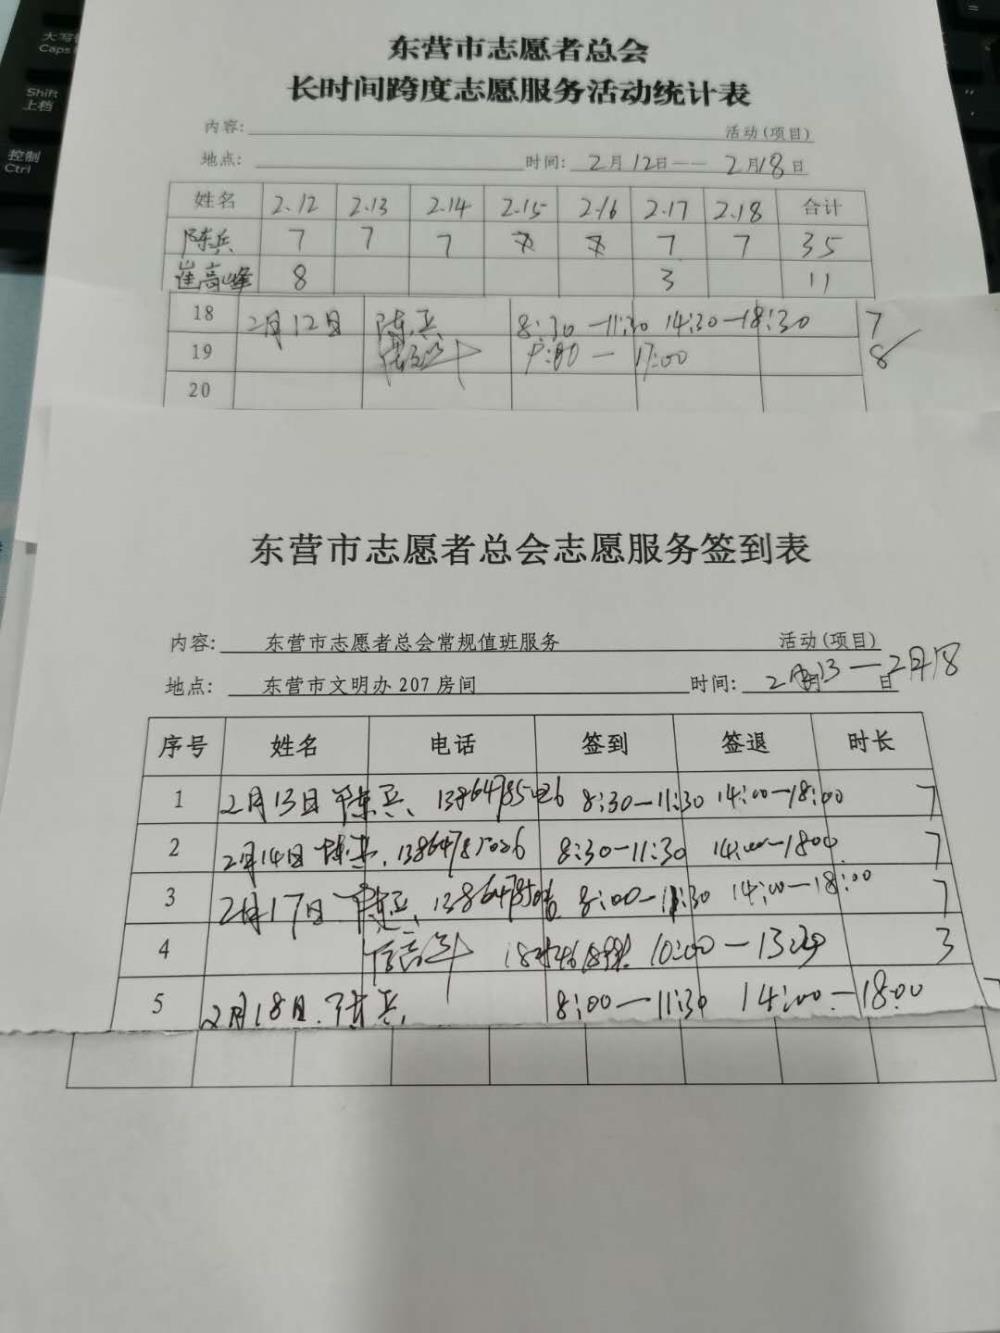 大写
Caps
Shift
上档
控制
Ctrl
东营市志愿者总会
长时间跨度志愿服务活动统计表
内容: 活动(项目)
地点: 时间: 2月12日—— 2月18日
姓名 2.12 2.13 2.14 2.15 2.16 2.17 2.18 合计
陈兵 7 7 7 7 7 35
崔高峰 8 3 11
18 2月12日 陈兵 8:30—11:30 14:30—18:30 7
19 — 17:00 8
20
东营市志愿者总会志愿服务签到表
内容: 东营市志愿者总会常规值班服务 活动(项目)
地点: 东营市文明办 207 房间 时间: 2月13—2月18日
序号 姓名 电话 签到 签退 时长
1 2月13日 陈兵 8:30—11:30 14:00—18:00 7
2 2月14日 陈兵 13864785026 8:30—11:30 14:00—18:00 7
3 2月17日 陈兵 8:00—11:30 14:00—18:00 7
4 10:00—13:00 3
5 2月18日 陈兵 8:00—11:30 14:00—18:00